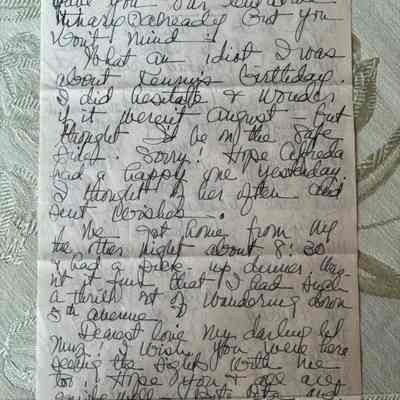 you our
already but you
don't mind!
What an idiot I was
about birthday.
I did hesitate & wonder
if it weren't August — but
thought I'd be on the safe
side. Sorry! Hope Alfreda
had a happy one yesterday.
I thought of her often and
sent wishes.
I've got home from
the other night about 8:30
& had a pick up dinner.
n't it fun that I had such
a thrill out of wandering down
5th avenue
Dearest love my darling
I wish you were here
seeing the sights with me
too! Hope you & are
well — and